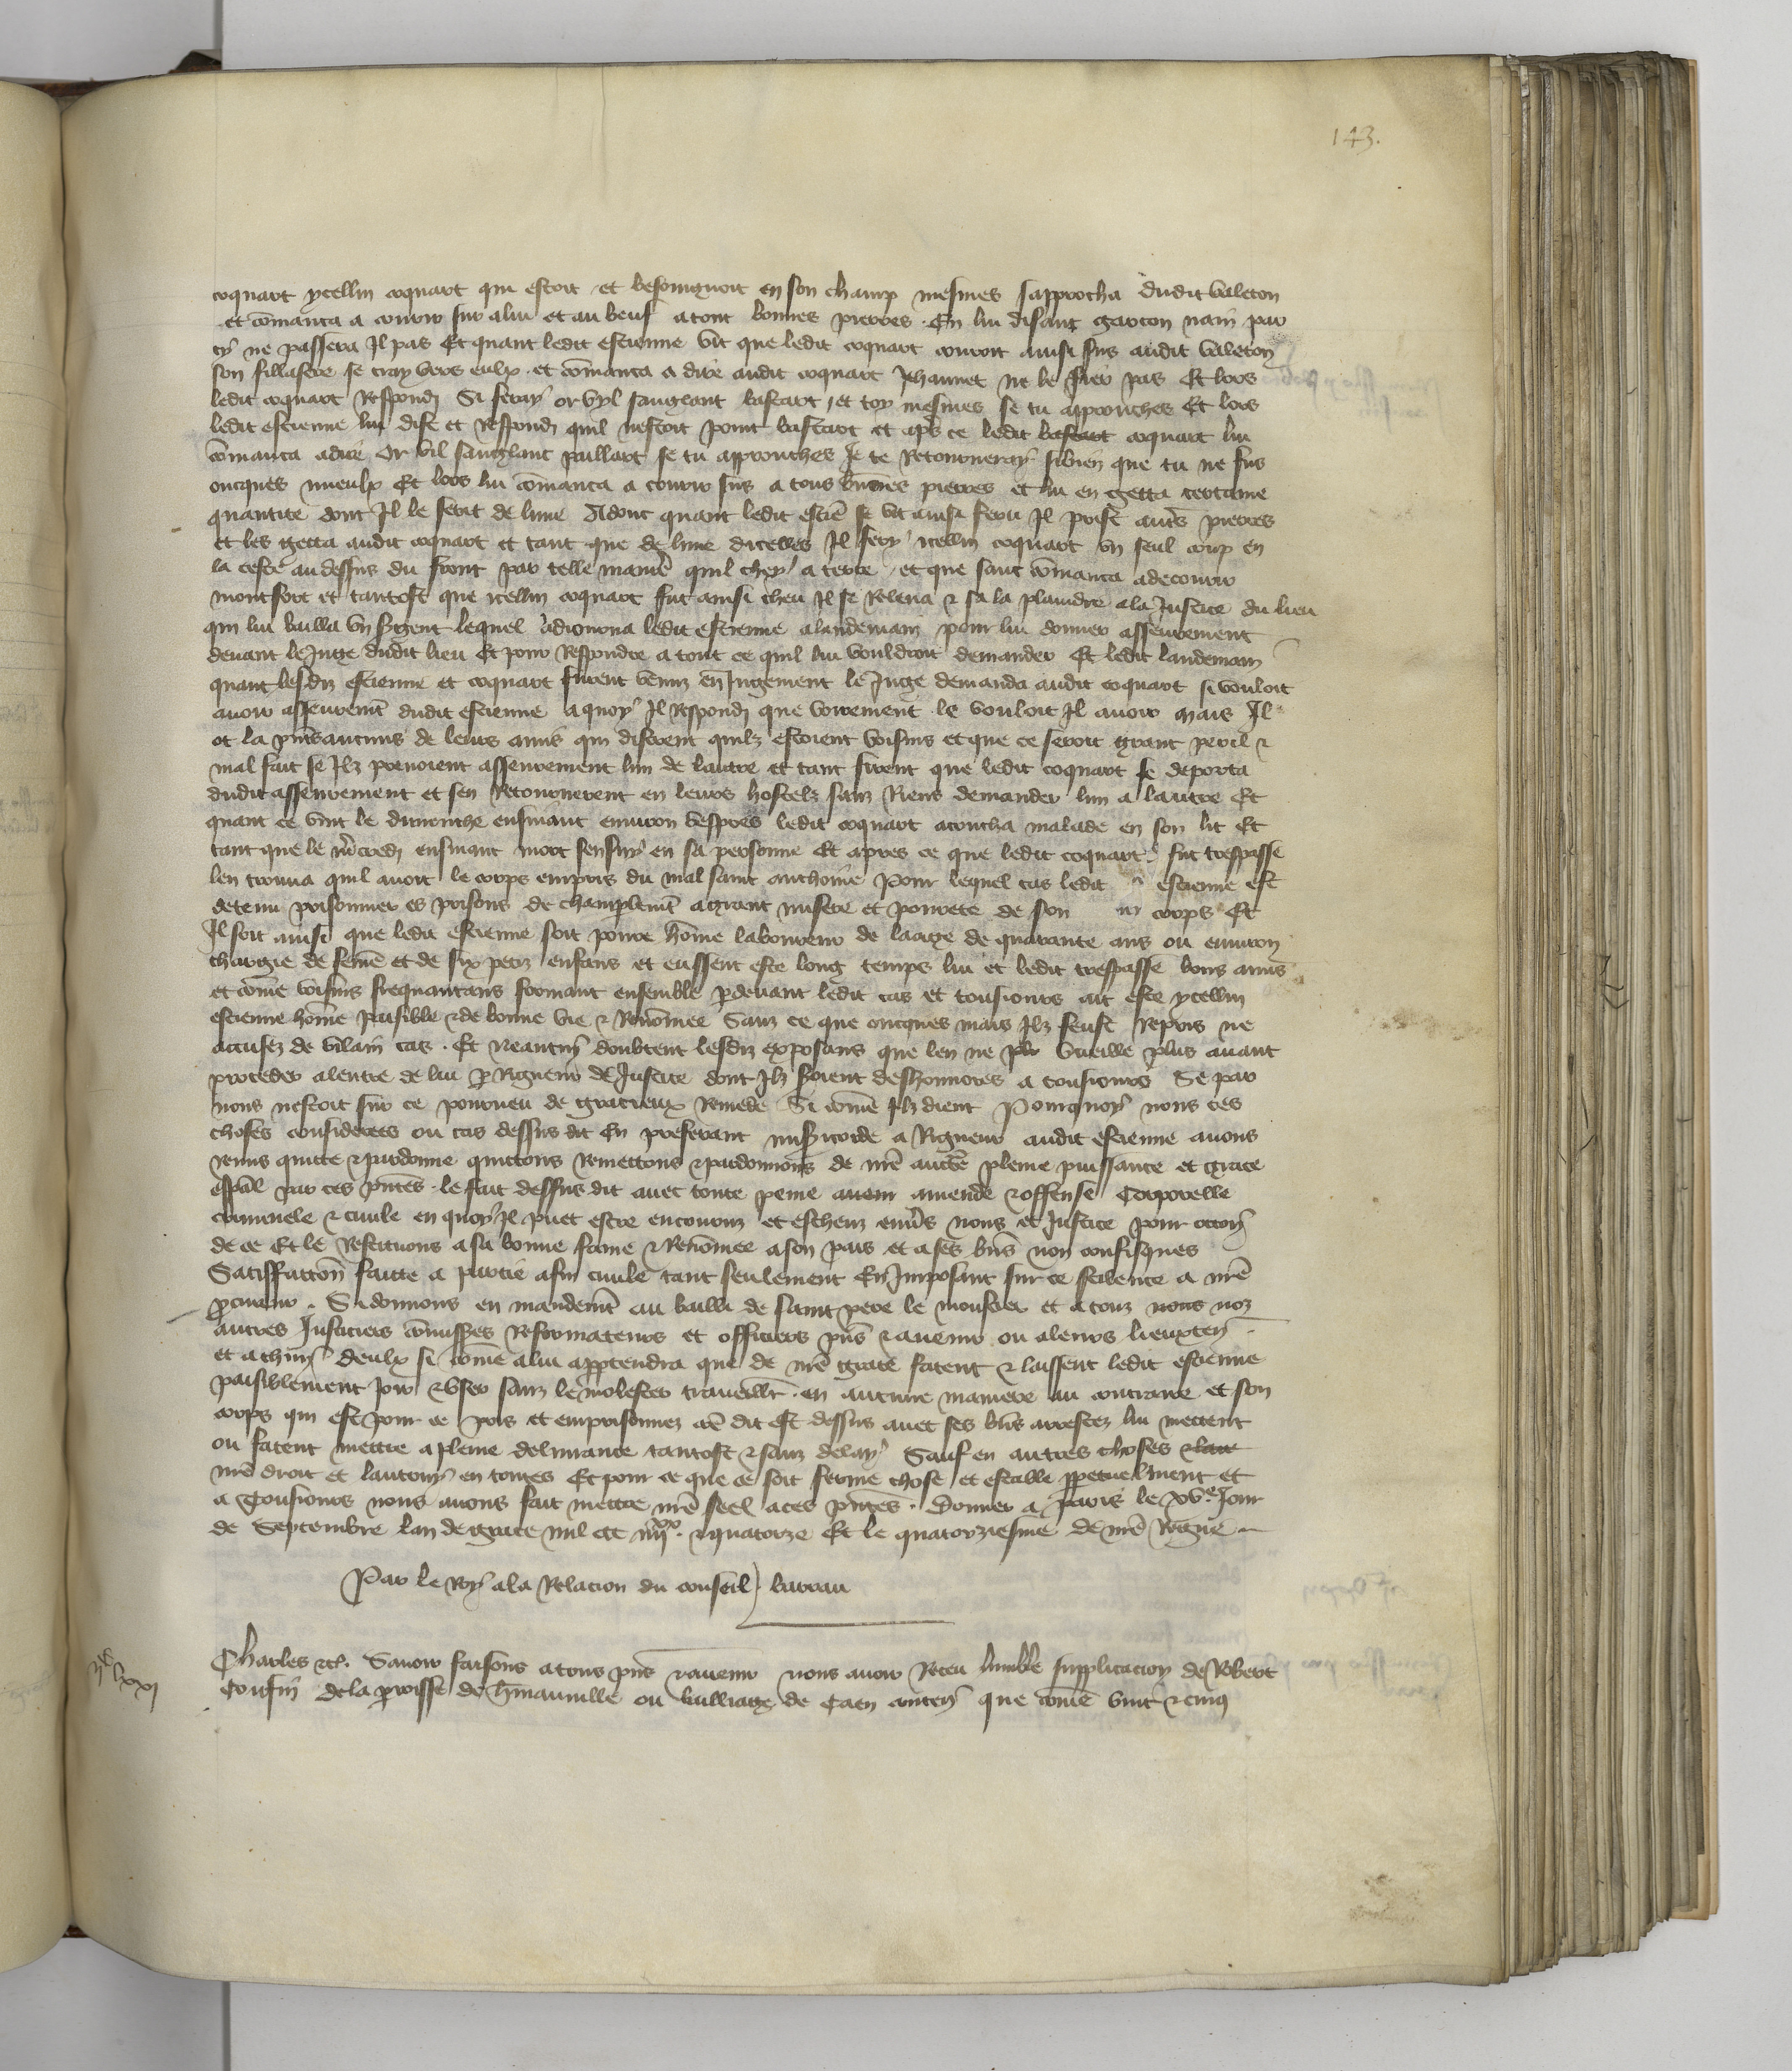 143.
coquart ycellui coquart qui estoit et besoingnoit en son champ mesmes sapprocha dudit valeton
et cōmanca a courir sur a lui et au beuf a tout bonnes pierres. En lui disant garcon nain par
cy ne passera Il pas Et quant ledit estienne vit que ledit coquart couroit ainsi sus audit valeton
son fillastre se tray vers eulx et cōmanca a dire audit coquart Jehannet ne le fier pas Et lors
ledit coquart Respondi Si feray or vyl sanglant bastart et toy mesmes se tu approuches Et lors
ledit estienne lui dist et Respondi quil nestoit point bastart et aps ce ledit bastart coquart lui
cōmanca adire Or vil sanglant paillart se tu approuches Je te Retourneray sibien que tu ne fus
oncques mieulx Et lors lui cōmanca a courir sus a tous bonnes pierres et lui en getta certaine
quantite dont Il le ferit de lune Adont quant ledit estieñ se vit ainsi feru Il prist autrs pierres
et les getta audit coquart et tant que de lune dicelles Il fery icellui coquart vn seul coup en
la teste au dessus du front par telle maniē quil chey a terre et que sanc cōmanca adecourir
moult fort et tantost que icellui coquart fut ainsi cheu Il se Releva & sa la plaindre ala Justice du lieu
qui lui bailla vn sergent lequel adiourna ledit estienne alandemain pour lui donner asseurement
devant le Juge dudit lieu Et pour Respondre a tout ce quil lui vouldroit demander Et ledit landemain
quant lesdiz estienne et coquart furent venuz en Jugement le Juge demanda audit coquart si vouloit
avoir asseuremt dudit estienne aquoy Il Respondi que voirement le vouloit Il avoir mais Il
ot la pñs aucuns de leurs amis qui distrent quilz estoient voisins et que ce seroit grant peril &
mal fait se Ilz prenoient asseurement lun de lautre et tant firent que ledit coquart se deporta
dudit asseurement et sen Retournerent en leurs hostelz sanz Riens demander lun a lautre Et
quant ce vint le dimenche ensuiant environ vespres ledit coquart acoucha malade en son lit Et
tant que le mercredi ensuiant mort sensuy en sa personne Et apres ce que ledit coquart fut trespasse
len trouva quil avoit le corps empris du mal saint anthoine Pour lequel cas ledit estienne est
detenu prisonnier es prisons de champlemt agrant misere et povrete de son corps Et
Il soit ainsi que ledit estienne soit povre hōme laboureur de laage de quarante ans ou environ
chargie de femē et de six petiz enfans et eussent este long temps lui et ledit trespasse bons amis
et cōme voisins frequantans formant ensemble pdevant ledit cas et tousiours ait este ycellui
estienne hōme paisible & de bonne vie & Renōmee Sanz ce que oncques mais Ilz feust Repris ne
accusez de vilain cas. Et neantm̄ doubtent lesdiz exposans que len ne vueille plus avant
proceder alentre de lui p Rigueur de Justice dont Ilz seroient deshonnorez a tousiours Se par
nous nestoit sur ce pourveu de gracieux remede Si cōme Ilz dient Pourquoy nous ces
choses considerees ou cas dessus dit En preferant misericorde a Rigueur audit estienne avons
remis quicte & pardonne quictons Remettons & pardonnons de nrē auctē pleine puissance et grace
espāl par ces pñtes le fait dessus dit avec toute peine avem̄ amende & offense Corporelle
criminele & civile en quoy Il puet estre encouruz et escheuz env̄s nous et Justice pour occoñ
de ce Et le Restituons a sa bonne fame & Renōmee a son pais et a ses bñs non confisques
Satiffaccoñ faicte a partie afin civile tant seulement En Imposant sur ce scilence a nrē
pcureur. Si donnons en mandemt au bailli de saint pere le moustier et a touz nous noz
autres Justiciers cōmiss̄es Reformateurs et officiers pñs & avenir ou aleurs lieuxteñ
et achuñ deulx si cōme alui appartendra que de nrē grace facent & laissent ledit estienne
paisiblement Joir & vser sanz le molester traveillr en aucune maniere au contraire et son
corps qui est pour ce pris et emprisonnez cōe dit est dessus avec ses bñs arrestez lui mettent
ou facent mettre a pleine delivrance tantost & sanz delay Sauf en autres choses
nrē droit et lautruy en toutes Et pour ce que ce soit ferme chose et estable ppetuelment et
a Tousiours nous avons fait mettre nrē seel a ces pñtes. Donner a Paris le xvᵉ Jour
de Septembre lan de grace mil ccc iiijˣˣ & quatorze Et le quatorziesme de nrē Regne
Par le Roy ala Relacion du conseil) barrau
ijᶜ lxxi
Charles &c. Savoir faisons a tous pñs & avenir nous avoir Receu humble supplicacion de Robert
Cousin de la proisse de hmanville ou bailliage de Caen conteñ que cōme vint & cinq